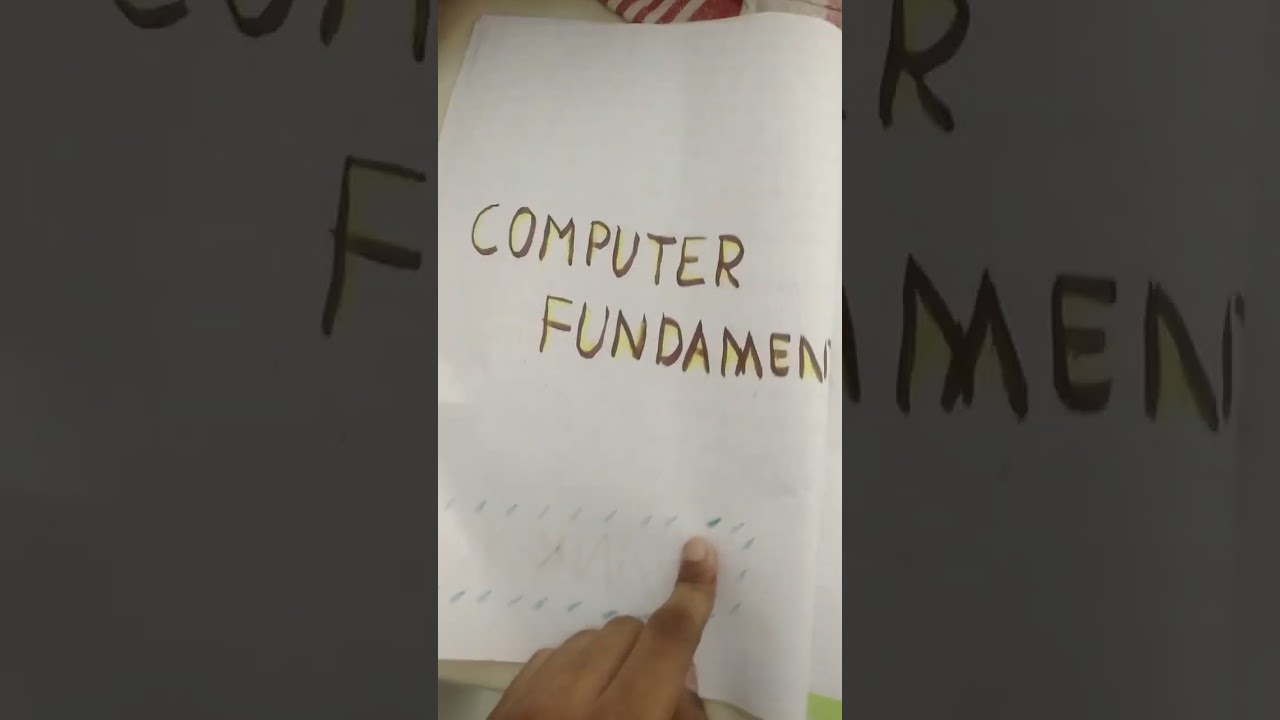 COMPUTER
FUNDAMEN